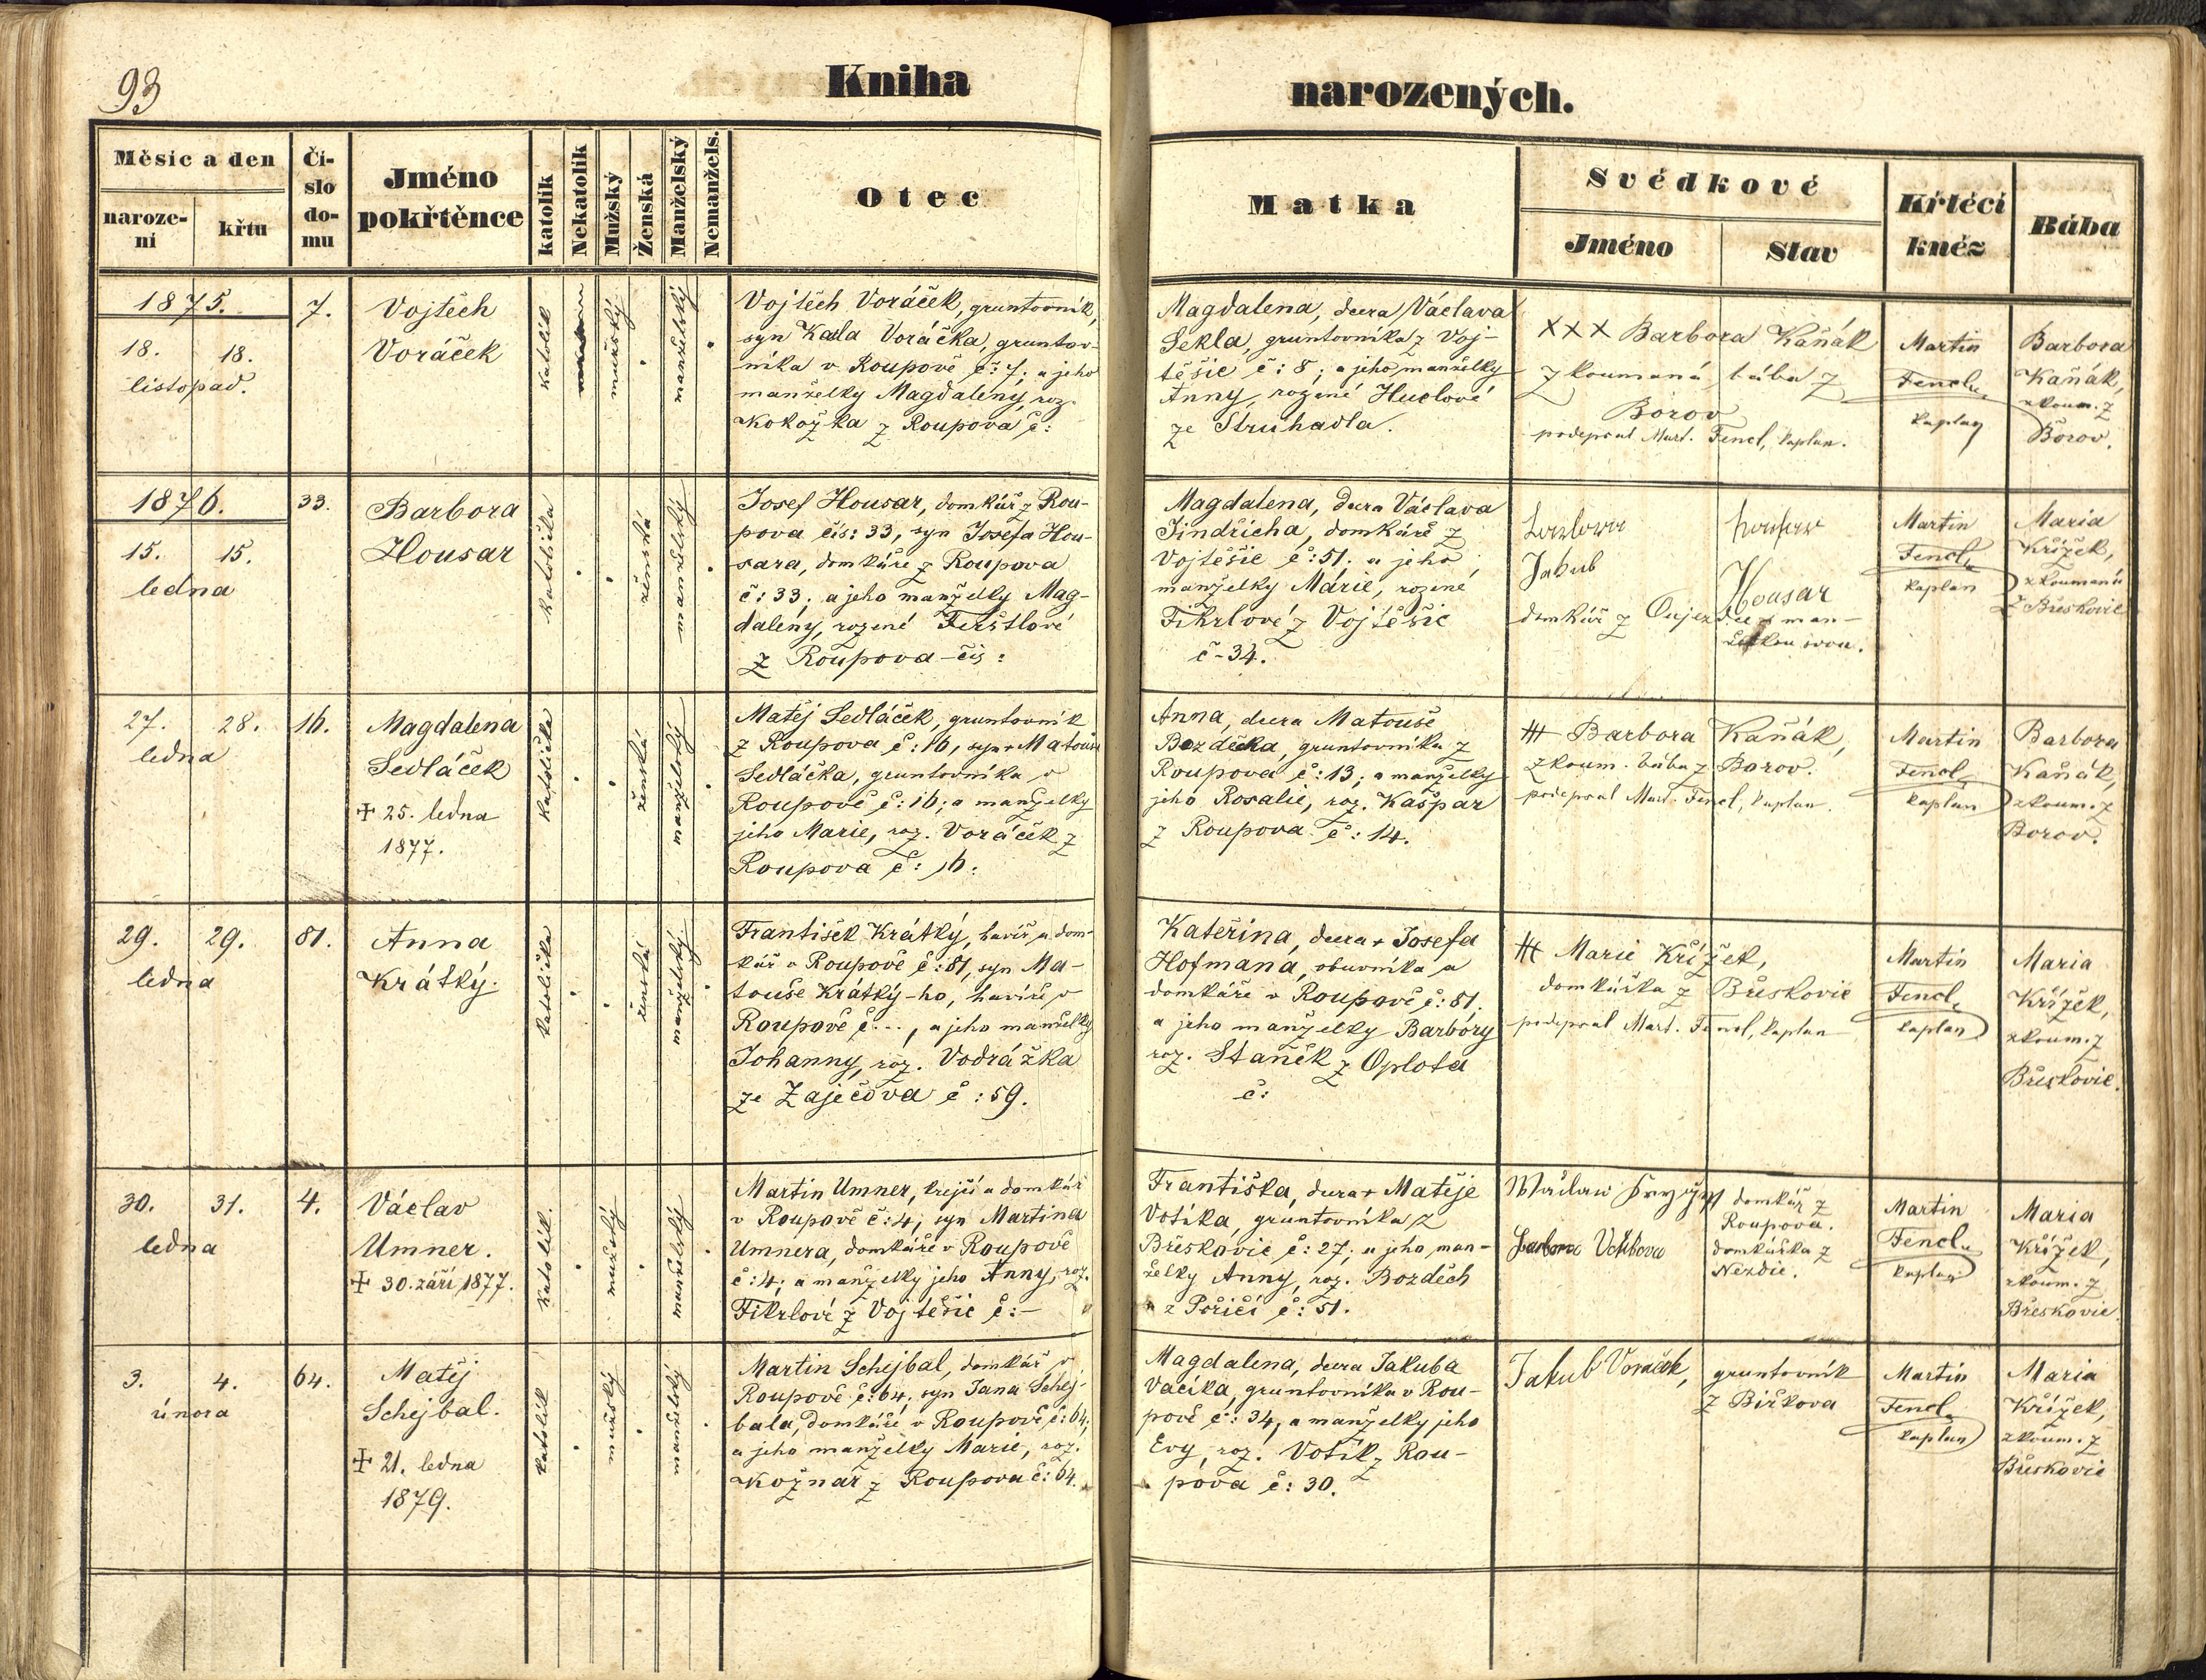 93
Kniha
narozených.
Měsíc a den
narození
křtu
Číslo domu
Jméno pokřtěnce
katolík
Nekatolík
Mužský
Ženská
Manželský
Nemanžels.
Otec
Matka
Svědkové
Jméno
Stav
Křtěcí kněz
Bába
1875.
18. 18.
listopad.
7.
Vojtěch
Voráček
katolík
mužský
manželský
Vojtěch Voráček, gruntovník,
syn Karla Voráčka, gruntov-
níka v Roupově č: 7; a jeho
manželky Magdaleny, roz.
Kokožka z Roupova č:
Magdalena, dcera Václava
Sekla, gruntovníka z Voj-
těšic č: 8; a jeho manželky
Anny, rozené Huclové
ze Struhadla.
XXX Barbora Kaňák
zkoumaná bába z
Borov
podepsal Mart. Fencl, kaplan.
Martin
Fencl,
kaplan
Barbora
Kaňák,
zkoum. z
Borov.
1876.
15. 15.
ledna
33.
Barbora
Housar
katolička
ženská
manželský
Josef Housar, domkář z Rou-
pova čís: 33, syn Josefa Hou-
sara, domkáře z Roupova
č: 33; a jeho manželky Mag-
daleny, rozené Ferštlové
z Roupova - čís:
Magdalena, dcera Václava
Jindřicha, domkáře z
Vojtěšic č: 51. a jeho
manželky Márie, rozené
Fikrlové z Vojtěšic
č - 34.
Jakub
Housar
domkář z Oujezdu s man-
želkou svou.
Martin
Fencl,
kaplan
Maria
Křížek,
zkoumaná
z Břeskovic
27. 28.
ledna
16.
Magdalena
Sedláček
+ 25. ledna
1877.
katolička
ženská
manželský
Matěj Sedláček, gruntovník
z Roupova č: 16, syn + Matouše
Sedláčka, gruntovníka v
Roupově č: 16; a manželky
jeho Marie, roz. Voráček z
Roupova č: 16.
Anna, dcera Matouše
Bozděcha, gruntovníka z
Roupova č: 13; a manželky
jeho Rosalie, roz. Kašpar
z Roupova č: 14.
+++ Barbora Kaňák,
zkoum. bába z Borov.
podepsal Mart. Fencl, kaplan.
Martin
Fencl,
kaplan
Barbora
Kaňák,
zkoum. z
Borov.
29. 29.
ledna
81.
Anna
Krátký.
katolička
ženská
manželský
František Krátký, havíř a dom-
kář v Roupově č: 81, syn Ma-
touše Krátký-ho, havíře v
Roupově č..., a jeho manželky
Johanny, roz. Vodrážka
ze Zaječova č: 59.
Kateřina, dcera + Josefa
Hofmana, obuvníka a
domkáře v Roupově č: 81.
a jeho manželky Barbory
roz. Staněk z Oplota
č:
+++ Marie Křížek,
domkářka z Břeskovic
podepsal Mart. Fencl, kaplan
Martin
Fencl,
kaplan
Maria
Křížek,
zkoum. z
Břeskovic.
30. 31.
ledna
4.
Václav
Umner.
+ 30. září 1877.
katolík.
mužský
manželský
Martin Umner, krejčí a domkář
v Roupově č: 4, syn Martina
Umnera, domkáře v Roupově
č: 4; a manželky jeho Anny, roz.
Fikrlové z Vojtěšic č: -
Františka, dcera + Matěje
Votíka, gruntovníka z
Břeskovic č: 27; a jeho man-
želky Anny, roz. Bozděch
z Poříčí č: 51.
domkář z
Roupova.
Barbora
domkářka z
Nezdic.
Martin
Fencl,
kaplan
Maria
Křížek,
zkoum. z
Břeskovic.
3. 4.
února
64.
Matěj
Schejbal.
+ 21. ledna
1879.
katolík
mužský
manželský
Martin Schejbal, domkář v
Roupově č: 64, syn Jana Schej-
bala, domkáře v Roupově č: 64;
a jeho manželky Marie, roz.
Kožnař z Roupova č: 64.
Magdalena, dcera Jakuba
Vacíka, gruntovníka v Rou-
pově č: 34, a manželky jeho
Evy, roz. Votík z Rou-
pova č: 30.
Jakub Voráček,
gruntovník
z Biřkova
Martin
Fencl,
kaplan
Maria
Křížek,
zkoum. z
Břeskovic